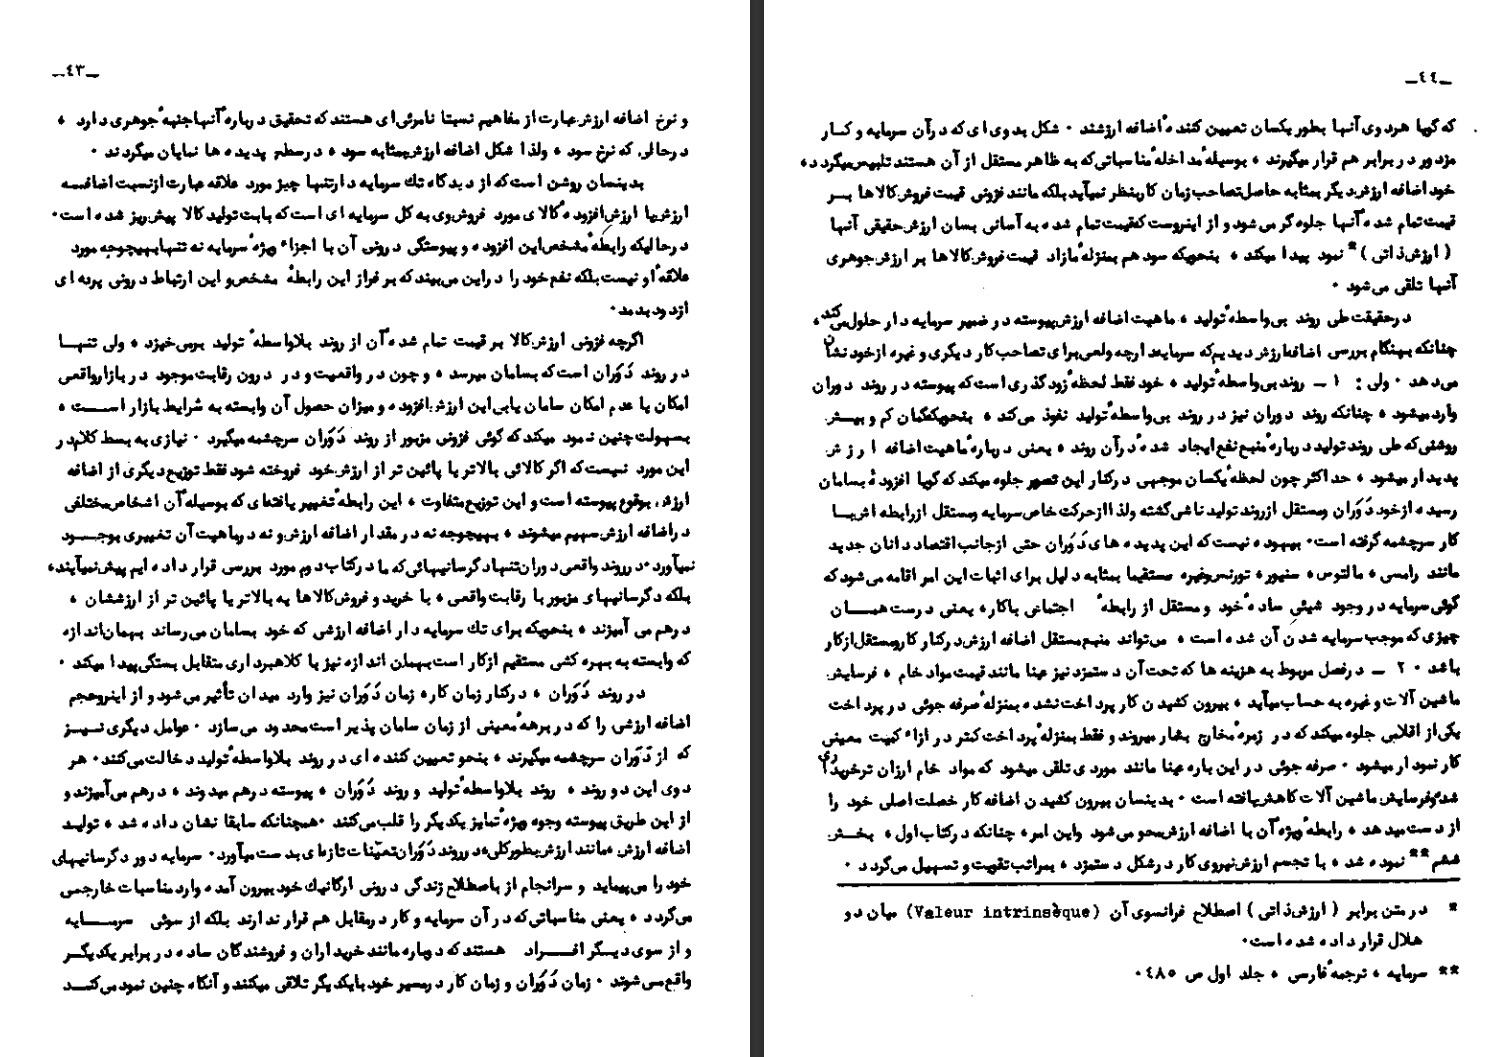 ـ٤٣ـ
و نرخ اضافه ارزش عبارت از مفاهیم نسبتا نامرئی ای هستند که تحقیق درباره ٔ آنها جنبه ٔ جوهری دارد ،
درحالی که نرخ سود ، ولذا شکل اضافه ارزش بمثابه سود ، در سطح پدیده ها نمایان میگردند ۰
بدینسان روشن است که از دیدگاه تك سرمایه دار تنها چیز مورد علاقه عبارت از نسبت اضافه
ارزش یا ارزش افزوده ٔ کالای مورد فروش وی به کل سرمایه ای است که بابت تولید کالا پیش ریز شده است۰
درحالیکه رابطه ٔ مشخص این افزوده و پیوستگی درونی آن با اجزاء ویژه ٔ سرمایه نه تنها بهیچوجه مورد
علاقه ٔ او نیست بلکه نفع خود را در این می بیند که بر فراز این رابطه ٔ مشخص و این ارتباط درونی پرده ای
ازدود بدمد۰
اگرچه فزونی ارزش کالا بر قیمت تمام شده ٔ آن از روند بلاواسطه ٔ تولید برمی خیزد ، ولی تنها
در روند دَوَران است که بسامان میرسد ، و چون در واقعیت و در درون رقابت موجود در بازار واقعی
امکان یا عدم امکان سامان یابی این ارزش افزوده و میزان حصول آن وابسته به شرایط بازار است ،
بسهولت چنین نمود میکند که گوئی فزونی مزبور از روند دَوَران سرچشمه میگیرد ۰ نیازی به بسط کلام در
این مورد نیست که اگر کالائی بالاتر یا پائین تر از ارزش خود فروخته شود فقط توزیع دیگری از اضافه
ارزش بوقوع پیوسته است و این توزیع متفاوت ، این رابطه ٔ تغییر یافته ای که بوسیله ٔ آن اشخاص مختلفی
در اضافه ارزش سهیم میشوند ، بهیچوجه نه در مقدار اضافه ارزش و نه در ماهیت آن تغییری بوجود
نمیآورد ۰ در روند واقعی دوران تنها دگرسانیهائی که ما در کتاب دوم مورد بررسی قرار داده ایم پیش نمیآیند ،
بلکه دگرسانیهای مزبور با رقابت واقعی ، با خرید و فروش کالاها به بالاتر یا پائین تر از ارزششان ،
درهم می آمیزند ، بنحویکه برای تك سرمایه دار اضافه ارزشی که خود بسامان می رساند بهمان اندازه
که وابسته به بهره کشی مستقیم از کار است بهمان اندازه نیز با کلاهبرداری متقابل بستگی پیدا میکند ۰
در روند دَوَران ، درکنار زمان کار ، زمان دَوَران نیز وارد میدان تأثیر می شود و از اینرو حجم
اضافه ارزشی را که در برهه ٔ معینی از زمان سامان پذیر است محدود می سازد ۰ عوامل دیگری نیز
که از دَوَران سرچشمه میگیرند ، بنحو تعیین کننده ای در روند بلاواسطه ٔ تولید دخالت می کنند۰ هر
دوی این دو روند ، روند بلاواسطه ٔ تولید و روند دَوَران ، پیوسته درهم میدوند ، درهم می آمیزند و
از این طریق پیوسته وجوه ویژه ٔ تمایز یکدیگر را قلب می کنند ۰ همچنانکه سابقا نشان داده شد ، تولید
اضافه ارزش ، مانند ارزش بطور کلی ، در روند دَوَران تعیّنات تازه ای بدست میآورد۰ سرمایه دور دگرسانیهای
خود را می پیماید و سرانجام از باصطلاح زندگی درونی ارگانیك خود بیرون آمده وارد مناسبات خارجی
میگردد ، یعنی مناسباتی که در آن سرمایه و کار در مقابل هم قرار ندارند بلکه از سوئی سرمایه
و از سوی دیگر افراد هستند که دوباره مانند خریداران و فروشندگان ساده در برابر یکدیگر
واقع می شوند ۰ زمان دَوَران و زمان کار در مسیر خود با یکدیگر تلاقی میکنند و آنگاه چنین نمود می کند
ـ٤٤ـ
که گویا هردوی آنها بطور یکسان تعیین کننده ٔ اضافه ارزشند ۰ شکل بدوی ای که در آن سرمایه و کار
مزدور در برابر هم قرار میگیرند ، بوسیله ٔ مداخله ٔ مناسباتی که به ظاهر مستقل از آن هستند تلبیس میگردد ،
خود اضافه ارزش دیگر بمثابه حاصل تصاحب زمان کار بنظر نمیآید بلکه مانند فزونی قیمت فروش کالاها بر
قیمت تمام شده ٔ آنها جلوه گر می شود و از اینروست که قیمت تمام شده به آسانی بسان ارزش حقیقی آنها
( ارزش ذاتی )* نمود پیدا میکند ، بنحویکه سود هم بمنزله ٔ مازاد قیمت فروش کالاها بر ارزش جوهری
آنها تلقی می شود ۰
درحقیقت طی روند بی واسطه ٔ تولید ، ماهیت اضافه ارزش پیوسته در ضمیر سرمایه دار حلول می کند ،
چنانکه بهنگام بررسی اضافه ارزش دیدیم که سرمایه دار چه ولعی برای تصاحب کار دیگری و غیره از خود نشان
می دهد ۰ ولی : ۱ ـ روند بی واسطه ٔ تولید ، خود فقط لحظه ٔ زود گذری است که پیوسته در روند دوران
وارد میشود ، چنانکه روند دوران نیز در روند بی واسطه ٔ تولید نفوذ می کند ، بنحویکه گمان کم و بیش
روشنی که طی روند تولید درباره ٔ منبع نفع ایجاد شده ٔ در آن روند ، یعنی درباره ٔ ماهیت اضافه ارزش
پدیدار میشود ، حداکثر چون لحظه ٔ یکسان موجهی درکنار این تصور جلوه میکند که گویا افزوده ٔ بسامان
رسیده از خود دَوَران ومستقل از روند تولید ناشی گشته ولذا از حرکت خاص سرمایه ومستقل از رابطه اش با
کار سرچشمه گرفته است۰ بیهوده نیست که این پدیده های دَوَران حتی از جانب اقتصاددانان جدید
مانند رامسی ، مالتوس ، سنیور ، تورنس وغیره مستقیما بمثابه دلیل برای اثبات این امر اقامه می شود که
گوئی سرمایه در وجود شیئی ساده ٔ خود و مستقل از رابطه ٔ اجتماعی با کار ، یعنی درست همان
چیزی که موجب سرمایه شدن آن شده است ، می تواند منبع مستقل اضافه ارزش درکنار کار ومستقل از کار
باشد ۰ ۲ ـ درفصل مربوط به هزینه ها که تحت آن دستمزد نیز عینا مانند قیمت مواد خام ، فرسایش
ماشین آلات و غیره به حساب میآید ، بیرون کشیدن کار پرداخت نشده بمنزله ٔ صرفه جوئی در پرداخت
یکی از اقلامی جلوه میکند که در زمره ٔ مخارج بشمار میروند و فقط بمنزله ٔ پرداخت کمتر در ازاء کمیت معینی
کار نمودار میشود ۰ صرفه جوئی در این باره عینا مانند موردی تلقی میشود که مواد خام ارزان تر خریداری
شده وفرسایش ماشین آلات کاهش یافته است ۰ بدینسان بیرون کشیدن اضافه کار خصلت اصلی خود را
از دست میدهد ، رابطه ٔ ویژه ٔ آن با اضافه ارزش محو می شود واین امر ، چنانکه درکتاب اول ، بخش
ششم** نموده شد ، با تجسم ارزش نیروی کار در شکل دستمزد ، بمراتب تقویت و تسهیل می گردد ۰
* درمتن برابر ( ارزش ذاتی ) اصطلاح فرانسوی آن (Valeur intrinsèque) میان دو
هلال قرار داده شده است۰
** سرمایه ، ترجمه ٔ فارسی ، جلد اول ص ٤٨٥ ۰